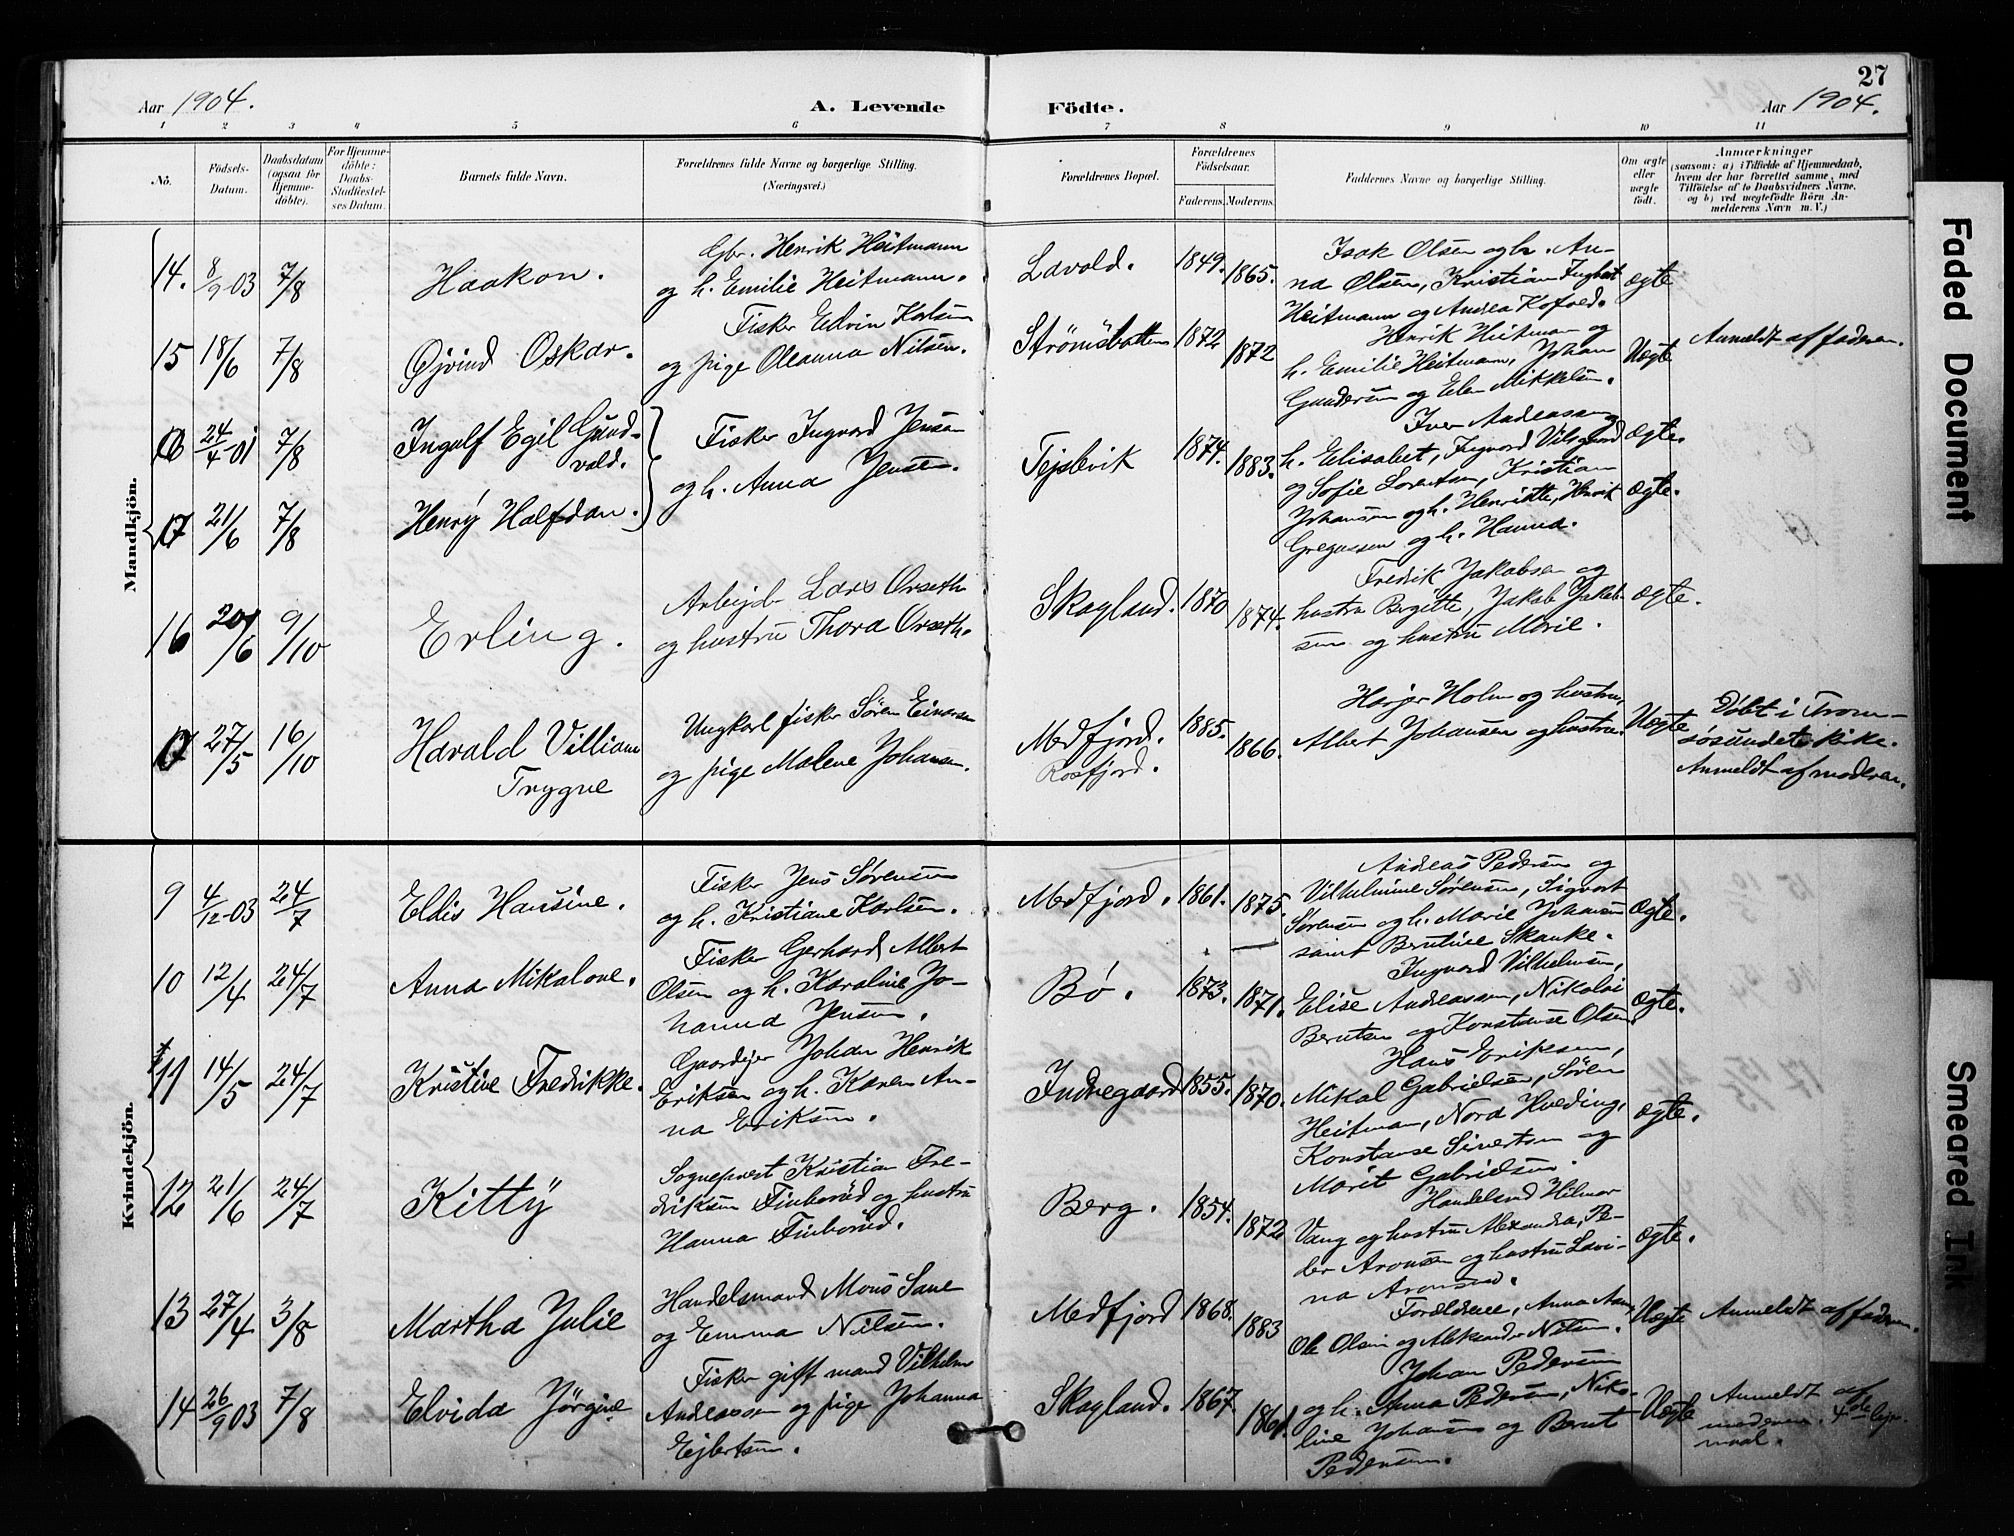 27
Aar 1904.
A. Levende
Födte.
Aar 1904.
1 2 3 4 5 6 7 8 9 10 11
No.
Födsels-
Datum.
Daabsdatum
(ogsaa for
Hjemme-
döbte).
For Hjemme-
döbte:
Daabs-
Stadfæstel-
ses Datum.
Barnets fulde Navn.
Forældrenes fulde Navne og borgerlige Stilling.
(Næringsvei.)
Forældrenes Bopæl.
Forældrenes
Födselsaar.
Faderens. Moderens.
Faddernes Navne og borgerlige Stilling.
Om ægte
eller
uægte
födt.
Anmærkninger
(saasom: a) i Tilfælde af Hjemmedaab,
hvem der har forrettet samme, med
Tilföielse af to Daabsvidners Navne,
og b) ved uægtefödte Börn An-
melderens Navn m. V.)
Mandkjön.
14. 8/9 03 7/8 Haakon.
Gbr. Henrik Heitmann
og h. Emilie Heitmann.
Lavold. 1849. 1865.
Isak Olsen og h. An-
na Olsen, Kristian Ingbrit
Heitmann og Andrea Kofoed.
Ægte
15 18/6 7/8 Øjvind Oskar.
Fisker Edvin Karlsen
og pige Oleanna Nilsen.
Strømsbotten 1872 1872
Henrik Heitman og
h. Emilie Heitmann, Johan
Gundersen og Elen Mikkelsen.
Uægte
Anmeldt af faderen.
24/4 01 7/8 Ingolf Egil Gund-
vald.
Fisker Ingvard Jensen
og h. Anna Jensen.
Tejstvik 1874. 1883.
Iver Andreassen og
h. Elisabet, Ingvard Vilsgaard
og Sofie Lorentsen, Kristian
Johansen og h. Henriette, Henrik
Gregussen og h. Hanna.
Ægte.
21/6 7/8 Henrÿ Halfdan.
Ægte.
16 20/6 9/10 Erling.
Arbejds Lars Orseth
og hustru Thora Orseth.
Skagland. 1870 1874.
Fredrik Jakobsen og
hustru Bergitte, Jakob Jakob-
sen og hustru Marie.
Ægte.
27/5 16/10 Harald Villiam
Trygve
Ungkarl fisker Søren Einarsen
og pige Malene Johansen.
Medfjord.
Rosfjord.
1885. 1866.
Hasjer Holm og hustru,
Albert Johansen og hustru.
Uægte
Døbt i Trom-
søsundets kirke.
Anmeldt af moderen.
Kvindekjön.
9 4/12 03 24/7 Eldis Hansine.
Fisker Jens Sørensen
og h. Kristiane Karlsen.
Medfjord. 1861. 1875.
Andreas Pedersen og
Vilhelmine Sørensen, Sigvart
Sørensen og h. Marie Johansen
samt Berntine Skanke.
Ægte.
10 12/4 24/7 Anna Mikalone.
Fisker Gerhard Albert
Olsen og h. Karoline Jo-
hanna Jensen.
Bø. 1873. 1871.
Ingvard Vilhelmsen,
Elise Andreassen, Nikolai
Berntsen og Konstanse Olsen.
Ægte.
11 14/5 24/7 Kristine Fredrikke.
Gaardejer Johan Henrik
Eriksen og h. Karen An-
na Eriksen.
Indregaard 1855. 1870.
Hans Eriksen,
Mikal Gabrielsen, Søren
Heitman, Nora Hveding,
Konstanse Sivertsen og
Marit Gabrielsen.
Ægte.
12 21/6 24/7 Kittÿ
Sogneprest Kristian Fre-
driksen Finborud og hustru
Hanna Finborud.
Berg. 1854. 1872
Handelsmd Hilmar
Vang og hustru Alexandra, Pe-
der Aronsen og hustru Lovi-
na Aronsen.
Ægte.
13 27/4 3/8 Martha Julie
Handelsmand Mons Sane
og Emma Nilsen.
Medfjord 1868. 1883
Forældrene, Anna Aan,
Ole Olsen og Aleksander Nilsen.
Uægte
Anmeldt af faderen.
14 26/9 03 7/8 Elvida Jørgine
Fisker gift mand Vilhelm
Andreassen og pige Johanna
Ejlertsen.
Skagland. 1867. 1861.
Johan Pedersen
og h. Anna Pedersen, Niko-
line Johansen og Bernt
Pedersen.
Uægte
Anmeldt af
moderen. 4de lejr-
maal.
Faded Document
Smeared Ink